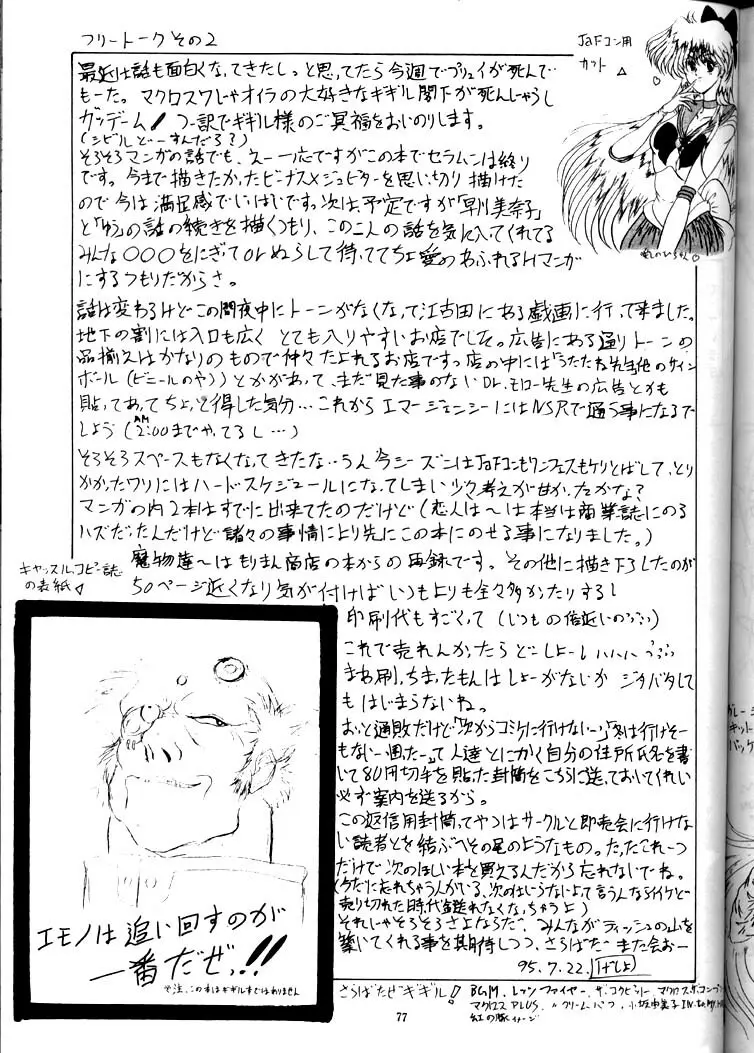 フリートーク その2
JaFコン用
カット
最近は話も面白くなってきたしっと思ってたら今週でプリュイが死んで
もーた。マクロス7じゃオイラの大好きなギギル閣下が死んじゃうし
ガッデーム! つー訳でギギル様のご冥福をおいのりします。
(シビルどーすんだろ?)
そろそろマンガの話でも、えー一応ですがこの本でセラムンは終り
です。今まで描きたかったビーナス×ジュピターを思い切り描けた
ので今は満足感でいっぱいです。次は、予定ですが「早川美奈子」
と「ゆう」の話の続きを描くつもり、この二人の話を気に入ってくれてる
みんな〇〇〇をにぎってorぬらして待っててちょ愛のあふれるHマンガ
にするつもりだからさ。
話は変わるけどこの間夜中にトーンがなくなって江古田にある戯画に行って来ました。
地下の割には入口も広く とても入りやすいお店でした。広告にある通りトーンの
品揃えはかなりのもので仲々たよれるお店ですっ店の中には「うたたね先生他のサイン
ボール(ビニールのやつ)とかがあって、まだ見た事のないDr.モロー先生の広告とかも
貼ってあってちょっと得した気分…これからエマージェンシーにはNSRで通う事になるで
しょう(AM2:00までやってるし…)
そろそろスペースもなくなってきたな‥うん今シーズンはJaFコンもワンフェスもケリとばして、とり
かかったワリにはハードスケジュールになってしまい少々考えが甘かったかな?
マンガの内2本はすでに出来てたのだけど(恋人は〜は本当は商業誌にのる
ハズだったんだけど諸々の事情により先にこの本にのせる事になりました。)
魔物達〜はもりまん商店の本からの再録です。その他に描き下ろしたのが
50ページ近くなり気が付けばいつもよりも全々多かったりするし
キャッスル、コピー誌
の表紙
印刷代もすごくって(いつもの倍近いのううう)
これで売れんかったらどーしよーしいいいいううう
まあ刷っちまったもんはしょーがないかジタバタして
もはじまらないね。
おっと通販だけど「次からコミケに行けないーっ」「冬は行けそー
もないー困ったーって人達とにかく自分の住所氏名を書
いて80円切手を貼った封筒をこちらに送っておいてくれい
必ず案内を送るから。
この返信用封筒ってやつはサークルと即売会に行けな
い読者とを結ぶへその尾のようなもの。たったこれ一つ
だけで次のほしい本を買えるんだから忘れないでね。
(今だに忘れちゃう人がいる、次のはいらないよって言うんならイイけど
売り切れた時代金送れなくなっちゃうよ)
それじゃそろそろさよならだっ、みんながティッシュの山を
築いてくれる事を期待しつつ、さらばだっまた会おー
95.7.22.
エモノは追い回すのが
一番だぜっ!!
※注、この本はギギル本ではありません
さらばだぜギギル!
77
BGM、レッツファイヤー、ザ・コクピット、マクロス・ザ・コンプ
マクロスPLUS、〃クリームパフ、小坂由美子IN
紅の豚イメージ
ガレージ
キット
パッケ